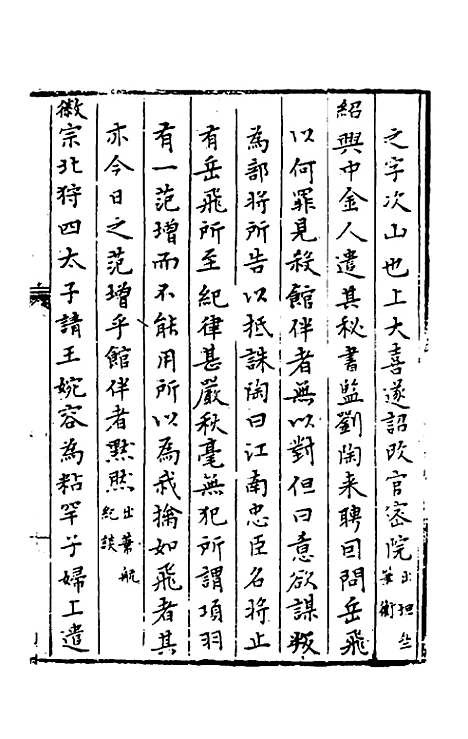 之字次山也上大喜遂詔改官密院出坦坐葉衡
紹興中金人遣其秘書監劉陶来聘囙問岳飛
以何罪見殺館伴者無以對但曰意欲謀叛
為部將所告以抵誅陶曰江南忠臣名將止
有岳飛所至紀律甚嚴秋毫無犯所謂項羽
有一范增而不能用所以為我擒如飛者其
亦今日之范增乎館伴者黙黙出葉航紀談
徽宗北狩四太子請王婉容為粘罕子婦上遣